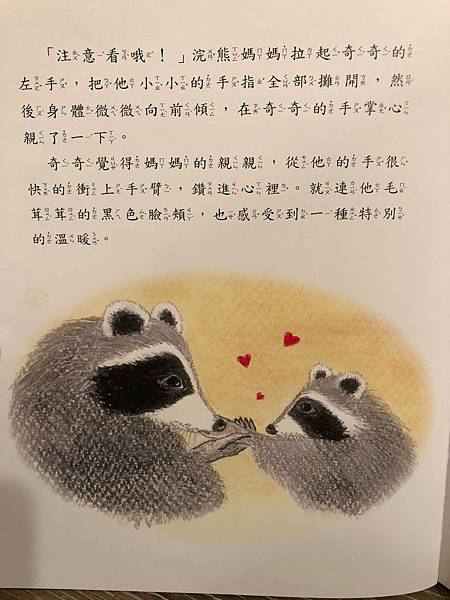 「注意看哦！」浣熊媽媽拉起奇奇的
左手，把他小小的手指全部攤開，然
後身體微微向前傾，在奇奇的手掌心
親了一下。
奇奇覺得媽媽的親親，從他的手很
快的衝上手臂，鑽進心裡。就連他毛
茸茸的黑色臉頰，也感受到一種特別
的溫暖。